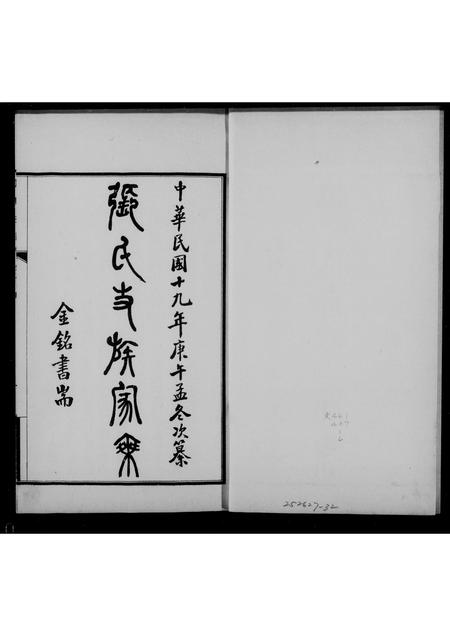 中華民國十九年庚午孟冬次纂
張氏支族家乘
金銘書耑
252627-32